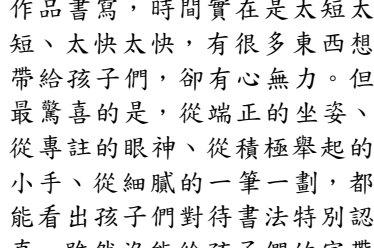 作品書寫，時間實在是太短太
短、太快太快，有很多東西想
帶給孩子們，卻有心無力。但
最驚喜的是，從端正的坐姿、
從專註的眼神、從積極舉起的
小手、從細膩的一筆一劃，都
能看出孩子們對待書法特別認
真。雖然沒能給孩子們的字帶